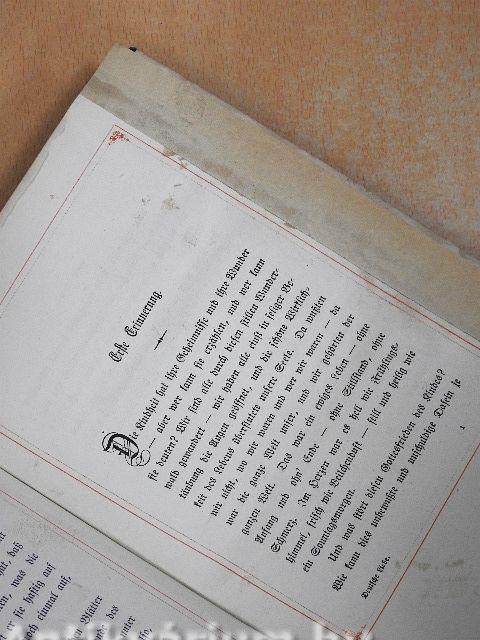 Erste Erinnerung.
Die Kindheit hat ihre Geheimnisse und ihre Wunder
— aber wer kann sie erzählen, und wer kann
sie deuten? Wir sind alle durch diesen stillen Wunder-
wald gewandert — wir haben alle einst in seliger Be-
täubung die Augen geöffnet, und die schöne Wirklich-
keit des Lebens überfluthete unsere Seele. Da wußten
wir nicht, wo wir waren und wer wir waren — da
war die ganze Welt unser, und wir gehörten der
ganzen Welt. Das war ein ewiges Leben — ohne
Anfang und ohn' Ende — ohne Stillstand, ohne
Schmerz. Im Herzen war es hell wie Frühlings-
himmel, frisch wie Veilchenduft — still und heilig wie
ein Sonntagsmorgen.
Und was stört diesen Gottesfrieden des Kindes?
Wie kann dies unbewußte und unschuldige Dasein je
Deutsche Liebe.
1
hat, daß
was die
er sie hastig auf
noch einmal auf,
Blätter
des
unter
Antikvárium.hu